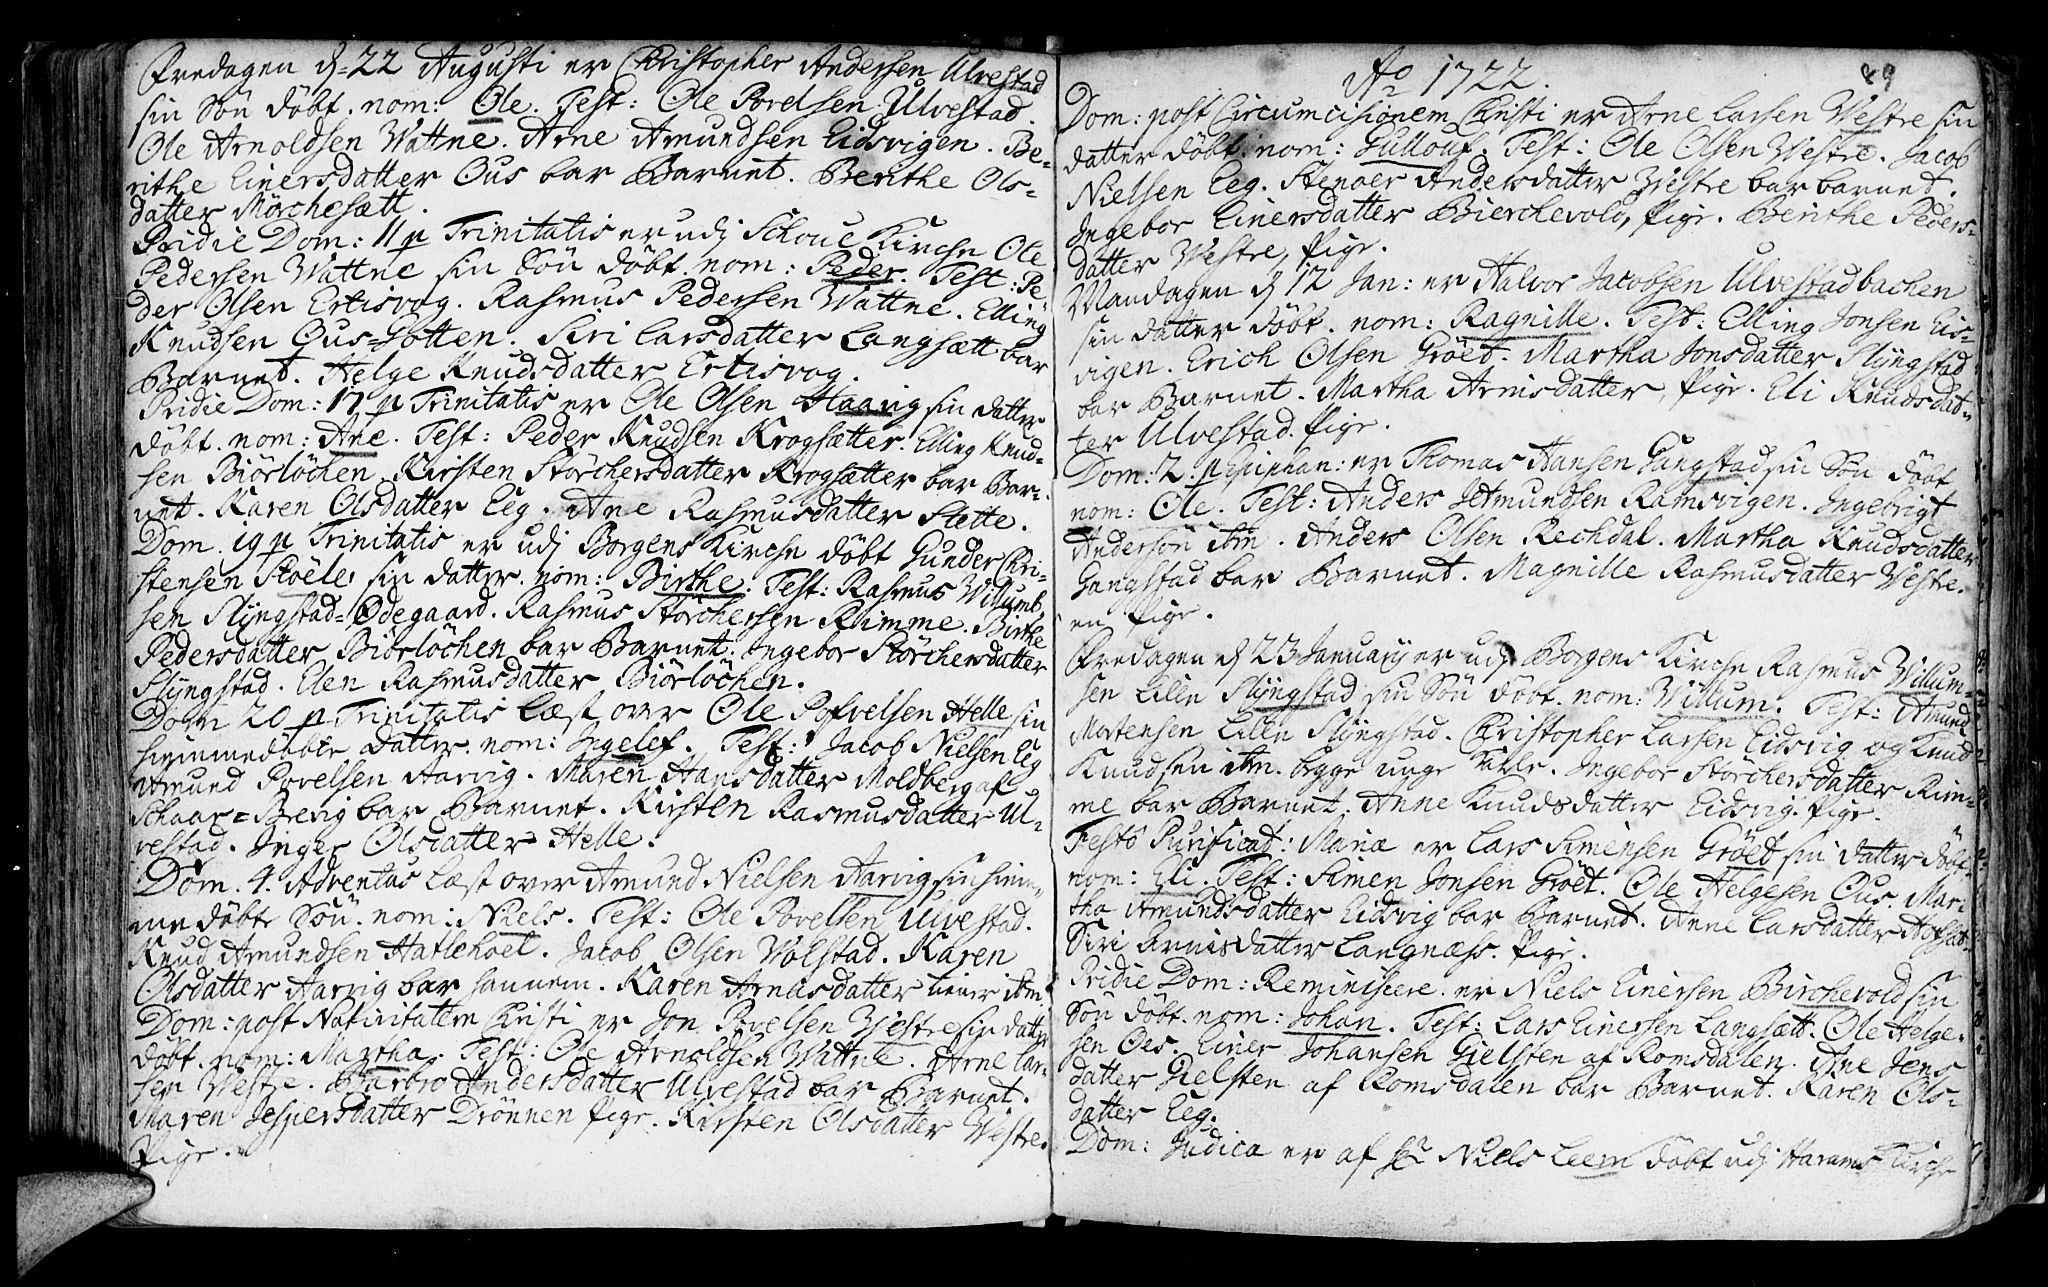 Fredagen d. 22 Augusti er Christopher Andersen Ulvestad
sin Søn döbt. nom: Ole. Test: Ole Povelsen Ulvestad.
Ole Arnoldsen Wattne. Arne Amundsen Eidsvigen. Be-
rithe Einersdatter Ous bar Barnet. Berithe Ols-
datter Mörchesætt.
Pridie Dom: 11 p Trinitatis er udj Schoue Kirche Ole
Pedersen Wattne sin Søn döbt. nom: Peder. Test: Pe-
der Olsen Ertisvog. Rasmus Pedersen Wattne. Elling
Knudsen Ous-Hotten. Siri Larsdatter Langsætt bar
Barnet. Helge Knudsdatter Ertisvog.
Pridie Dom: 17 p Trinitatis er Ole Olsen Haavig sin datter
döbt. nom: Ane. Test: Peder Knudsen Krogsætter. Elling Knud-
sen Biörlöchen. Kirsten Störchersdatter Krogsætter bar Bar-
net. Karen Olsdatter Eeg. Ane Rasmusdatter Slette.
Dom. 19 p Trinitatis er udj Borgens Kirche döbt Gunder Chri-
stensen Stoele sin datter. nom: Birthe. Test: Rasmus Willumb-
sen Slijngstad-Ødegaard. Rasmus Störchersen Rimme. Birthe
Pedersdatter Biörlöchen bar Barnet. Ingebor Störchersdatter
Slijngstad. Elen Rasmusdatter Biörlöchen.
Dom 20 p Trinitatis læst over Ole Povelsen Helle sin
hiemmedöbte datter. nom: Ingelef. Test: Jacob Nielsen Eeg
Amund Povelsen Aarvig. Maren Hansdatter Moldberg af
Schaar-Brevig bar Barnet. Kirsten Rasmusdatter Ul-
vestad. Inger Olsdatter Helle.
Dom. 4. Adventus læst over Amund Nielsen Aarvig sin hiem-
me döbte Søn. nom: Niels. Test: Ole Povelsen Ulvestad.
Knud Amundsen Hatlehoel. Jacob Olsen Wolstad. Karen
Olsdatter Aarvig bar hannem. Karen Arnesdatter tiener ibm.
Dom: post Nativitatem Christi er Jon Povelsen Westre sin datter
döbt. nom: Martha. Test: Ole Arnoldsen Wattne. Arne Lar-
sen Westre. Barbro Andersdatter Ulvestad bar Barnet.
Maren Jespersdatter Drönnen Pige. Kirsten Olsdatter Westre.
Pige.
Ao 1722. 89
Dom: post Circumcisionem Christi er Arne Larsen Westre sin
datter döbt. nom: Gullouf. Test: Ole Olsen Westre. Jacob
Nielsen Eeg. Stenoer Andersdatter Westre bar barnet.
Ingebor Einersdatter Bierchevold, Pige. Berithe Peders-
datter Westre, Pige.
Mandagen d 12 Jan: er Halvor Jacobsen Ulvestadbachen
sin datter döbt. nom: Ragnille. Test: Elling Jonsen Eis-
vigen. Erich Olsen Gröet. Martha Jonsdatter Slijngstad
bar Barnet. Martha Arnisdatter, Pige. Eli Knudsdat-
ter Ulvestad. Pige.
Dom: 2. p Epiphan: er Thomas Hansen Gangstad sin Søn döbt
nom: Ole. Test: Anders Amundsen Ramsvigen. Ingebrigt
Anderson ibm. Anders Olsen Rechdal. Martha Knudsdatter
Gangstad bar Barnet. Magnille Rasmusdatter Westre.
en Pige.
Fredagen d 23 January er udj Borgens Kirche Rasmus Willum-
sen Lille Slijngstad sin Søn döbt. nom: Willum. Test: Amund
Mortensen Lille Slijngstad. Christopher Larsen Eidsvig og Knud
Knudsen ibm. begge unge Karle. Ingebor Störchersdatter Rim-
me bar Barnet. Anne Knudsdatter Eidsvig. Pige.
Festo Purificat: Mariæ er Lars Simensen Gröet sin datter döbt.
nom: Eli. Test: Simen Jonsen Gröet. Ole Helgesen Ous. Mar-
tha Amundsdatter Eidsvig bar Barnet. Anne Larsdatter Hofsæt.
Siri Arnisdatter Langnæss. Pige.
Pridie Dom: Reminiscere er Niels Einersen Birchevold sin
Søn döbt. nom: Johan. Test: Lars Einersen Langsætt. Ole Helge-
sen Oes. Einer Johansen Gielsten af Romsdalen. Ane Jens
datter Gielsten af Romsdalen bar Barnet. Karen Ols-
datter Eeg.
Dom: Judica er af Niels Leem döbt udj Harams Kirche